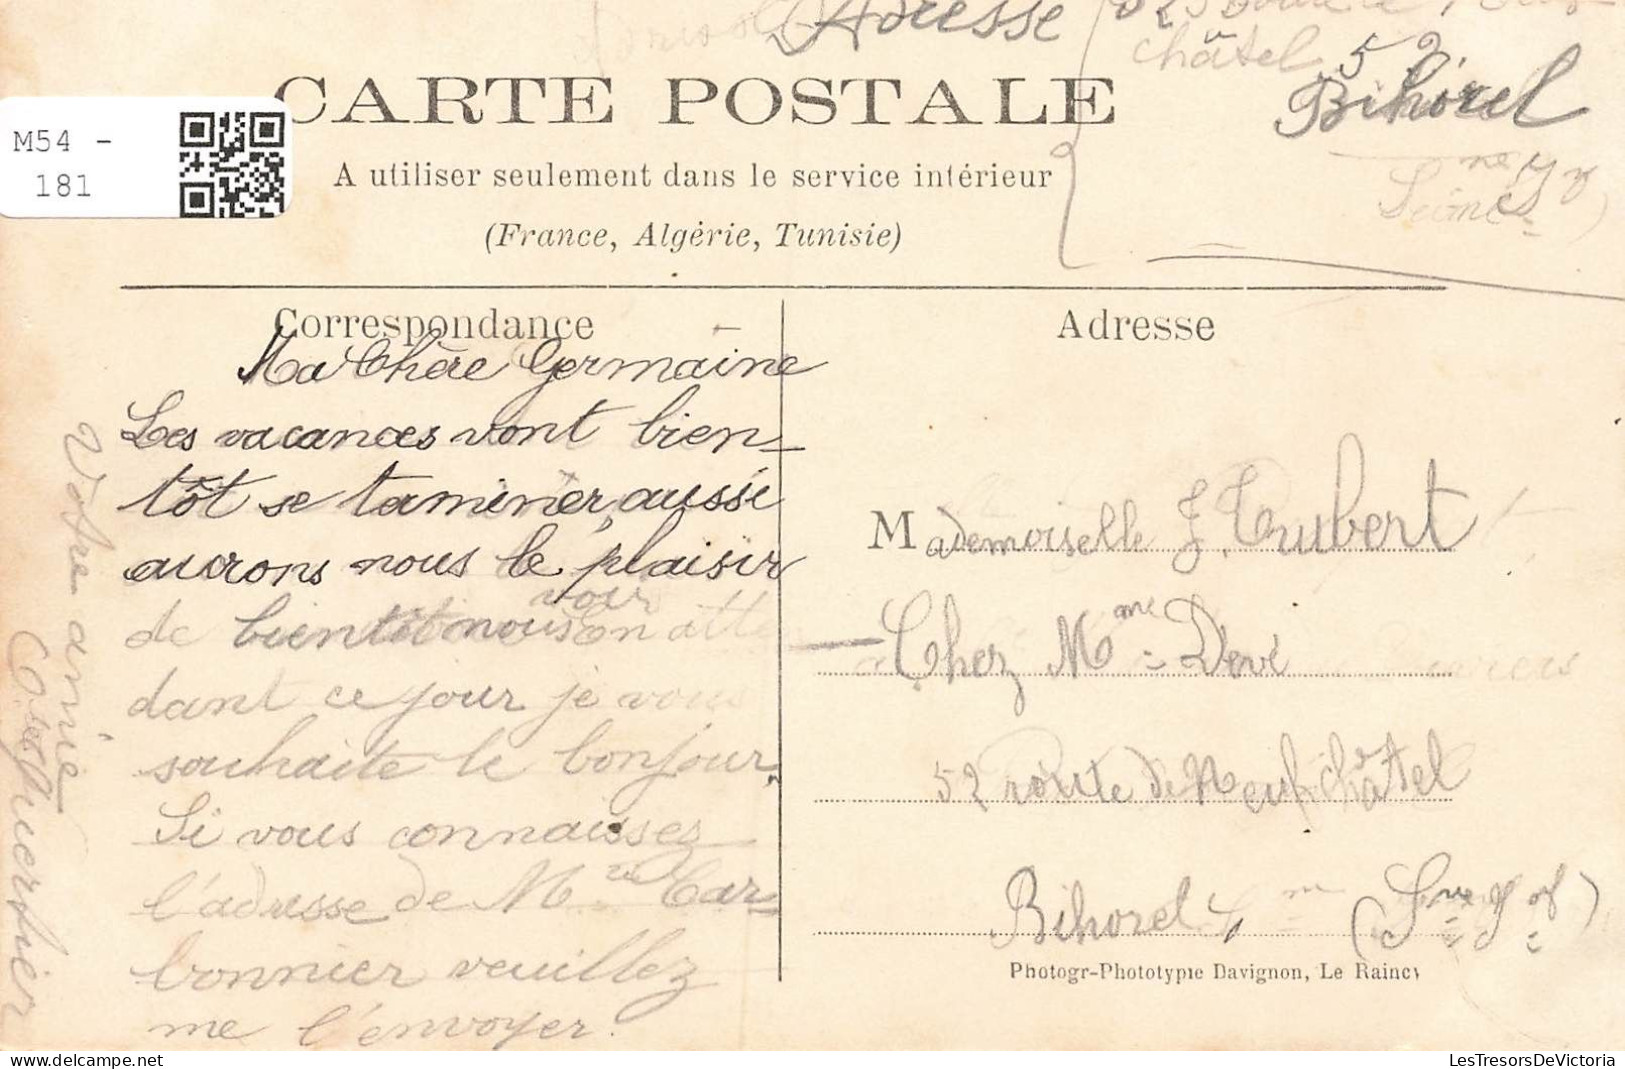 Adresse
châtel 52
Bihorel
CARTE POSTALE
M54 -
181
A utiliser seulement dans le service intérieur
(France, Algérie, Tunisie)
Correspondance
Adresse
Ma Chère Germaine
Les vacances vont bien-
tôt se taminer, aussi
aurons nous le plaisir
de bientôt nous voir en atten
dant ce jour je vous
souhaite le bonjour.
Si vous connaissez
l'adresse de Mme Car-
bonnier veuillez
me l'envoyer.
Votre amie
Mademoiselle J. Tubert
Chez Mme Devé
52 route de Neufchâtel
Bihorel
Photogr-Phototypie Davignon, Le Raincy
LesTresorsDeVictoria